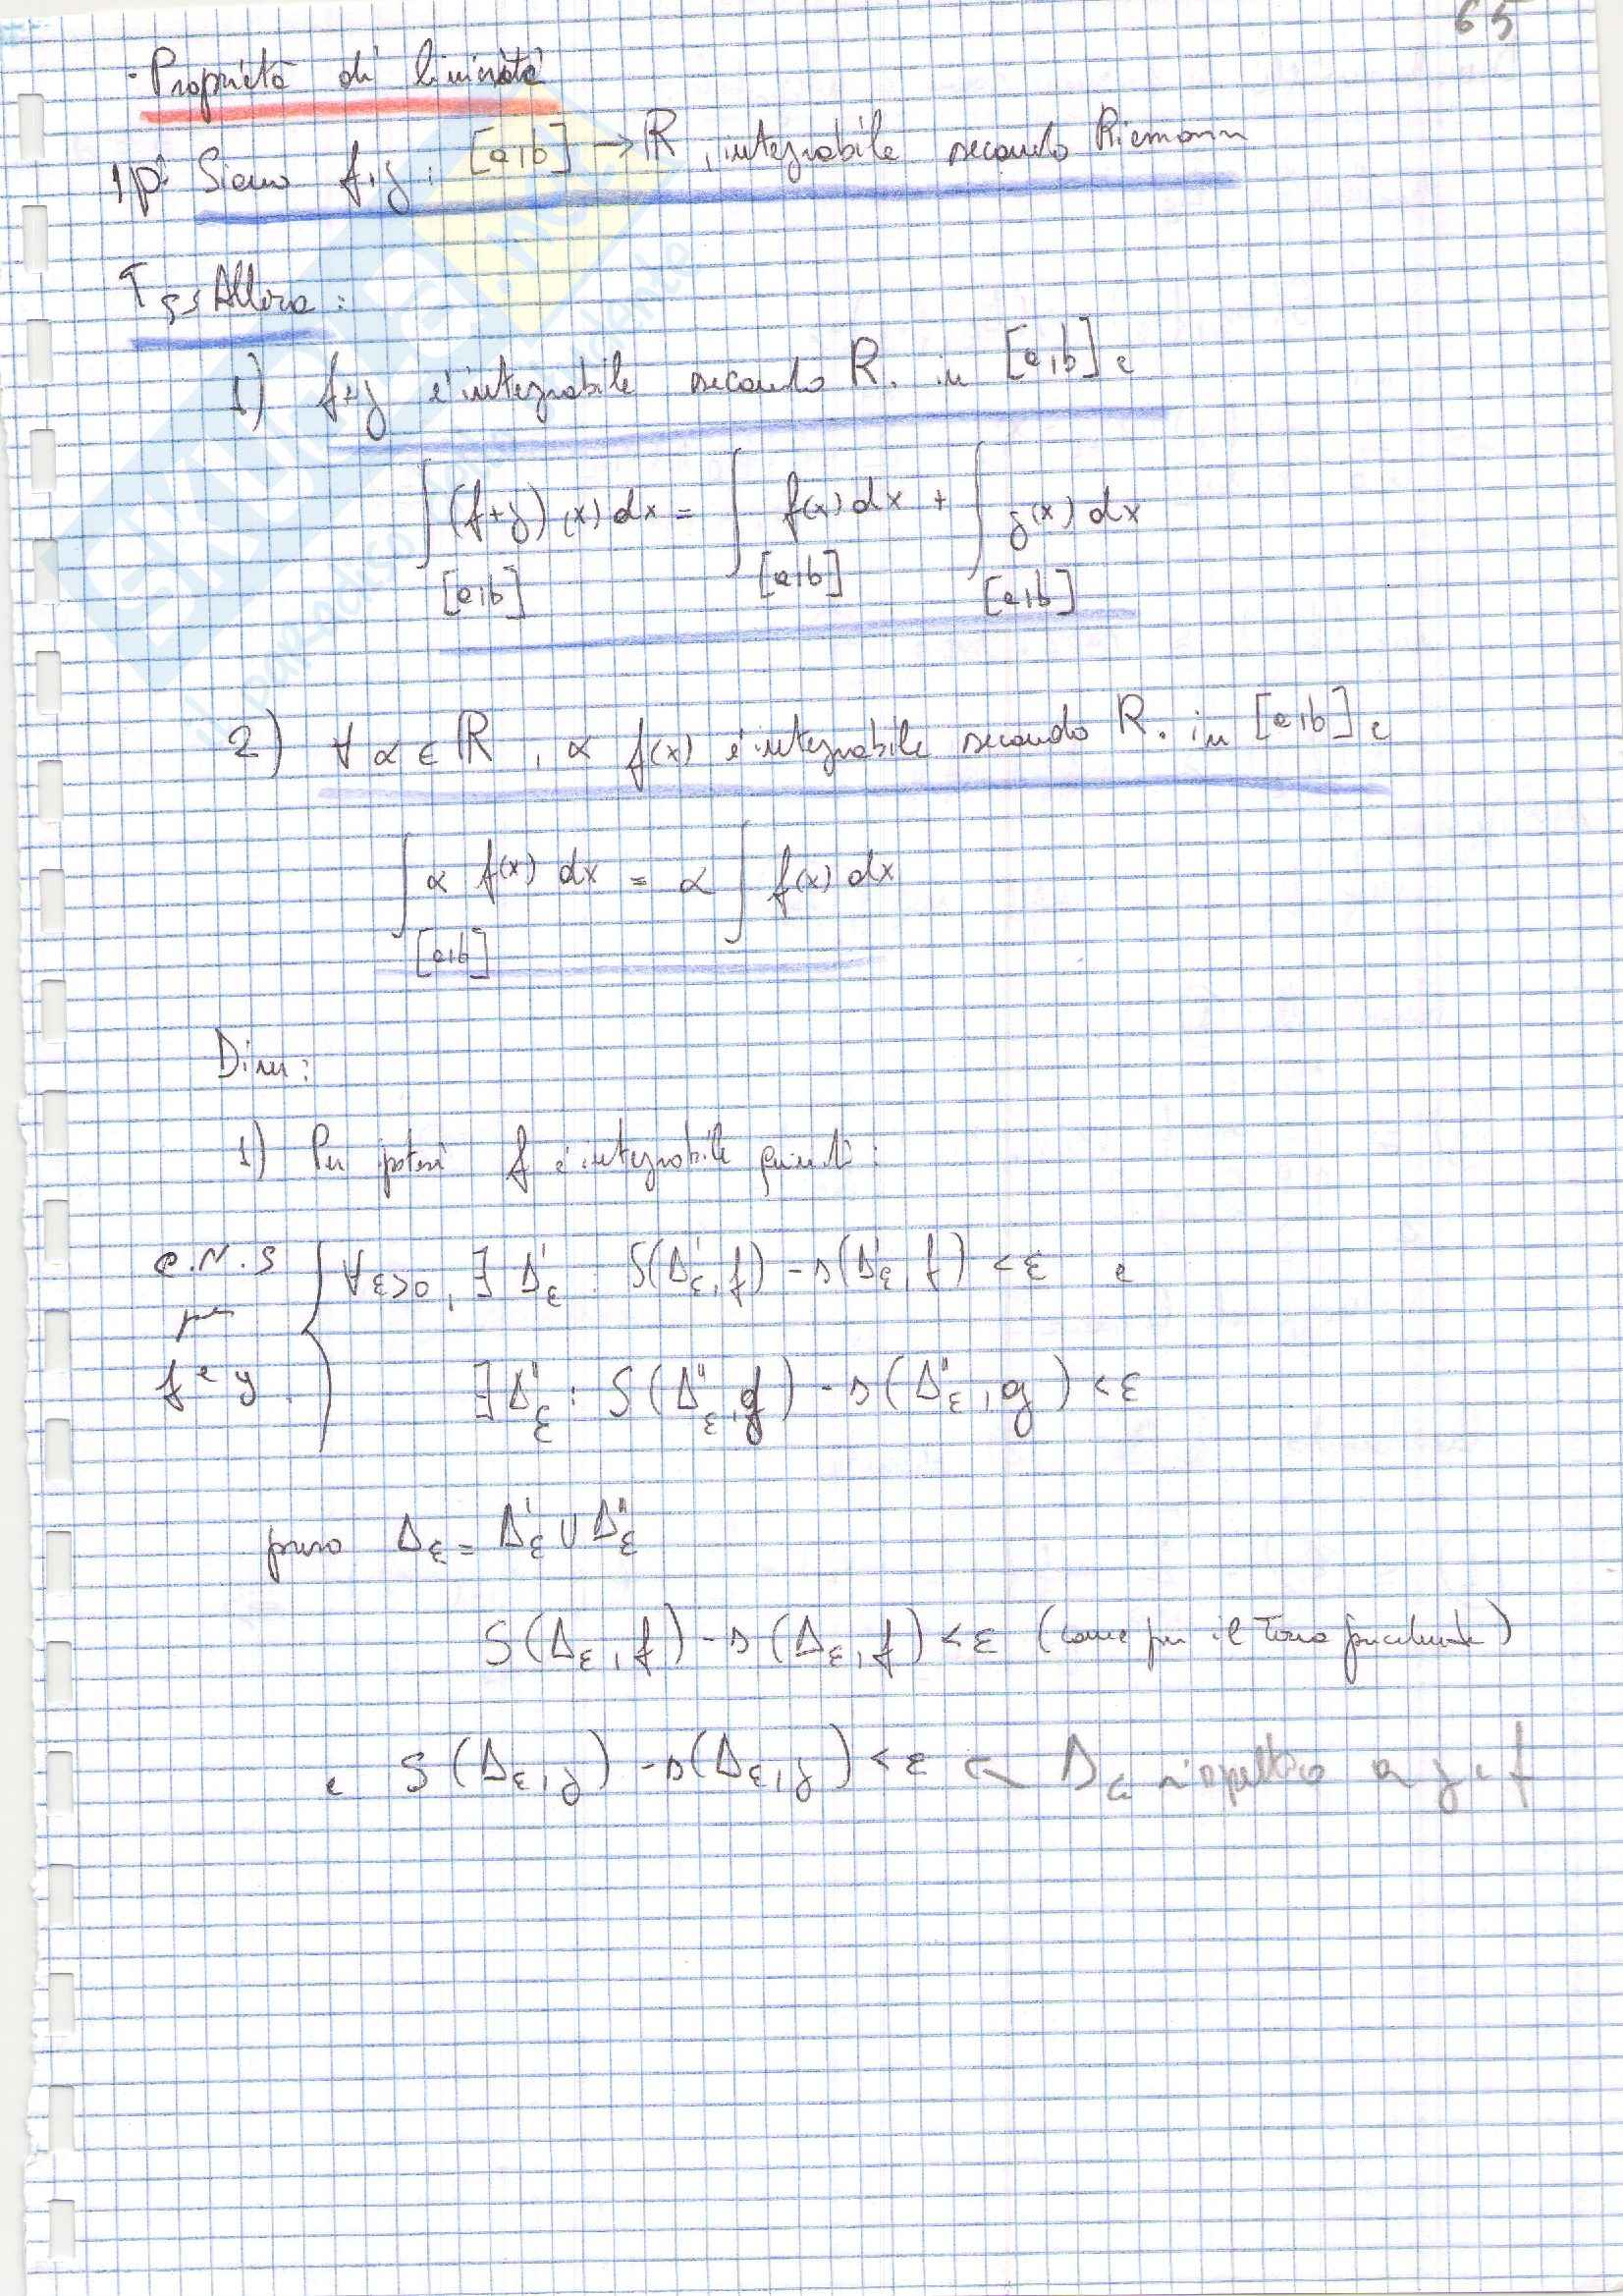 65
- Proprietà di linearità
Ip: Siano f,g: [a,b] → R, integrabile secondo Riemann
Tesi Allora:
1) f+g è integrabile secondo R. in [a,b] e
∫(f+g)(x) dx = ∫ f(x) dx + ∫ g(x) dx
[a,b] [a,b] [a,b]
2) ∀ α ∈ R, α f(x) è integrabile secondo R. in [a,b] e
∫ α f(x) dx = α ∫ f(x) dx
[a,b]
Dim:
1) Per ipotesi f è integrabile quindi:
C.N.S per f e g { ∀ε>0, ∃ Δ'ε : S(Δ'ε, f) - s(Δ'ε, f) < ε e
∃ Δ''ε : S(Δ''ε, g) - s(Δ''ε, g) < ε
preso Δε = Δ'ε ∪ Δ''ε
S(Δε, f) - s(Δε, f) < ε (come per il precedente)
e S(Δε, g) - s(Δε, g) < ε rispetto a g e f